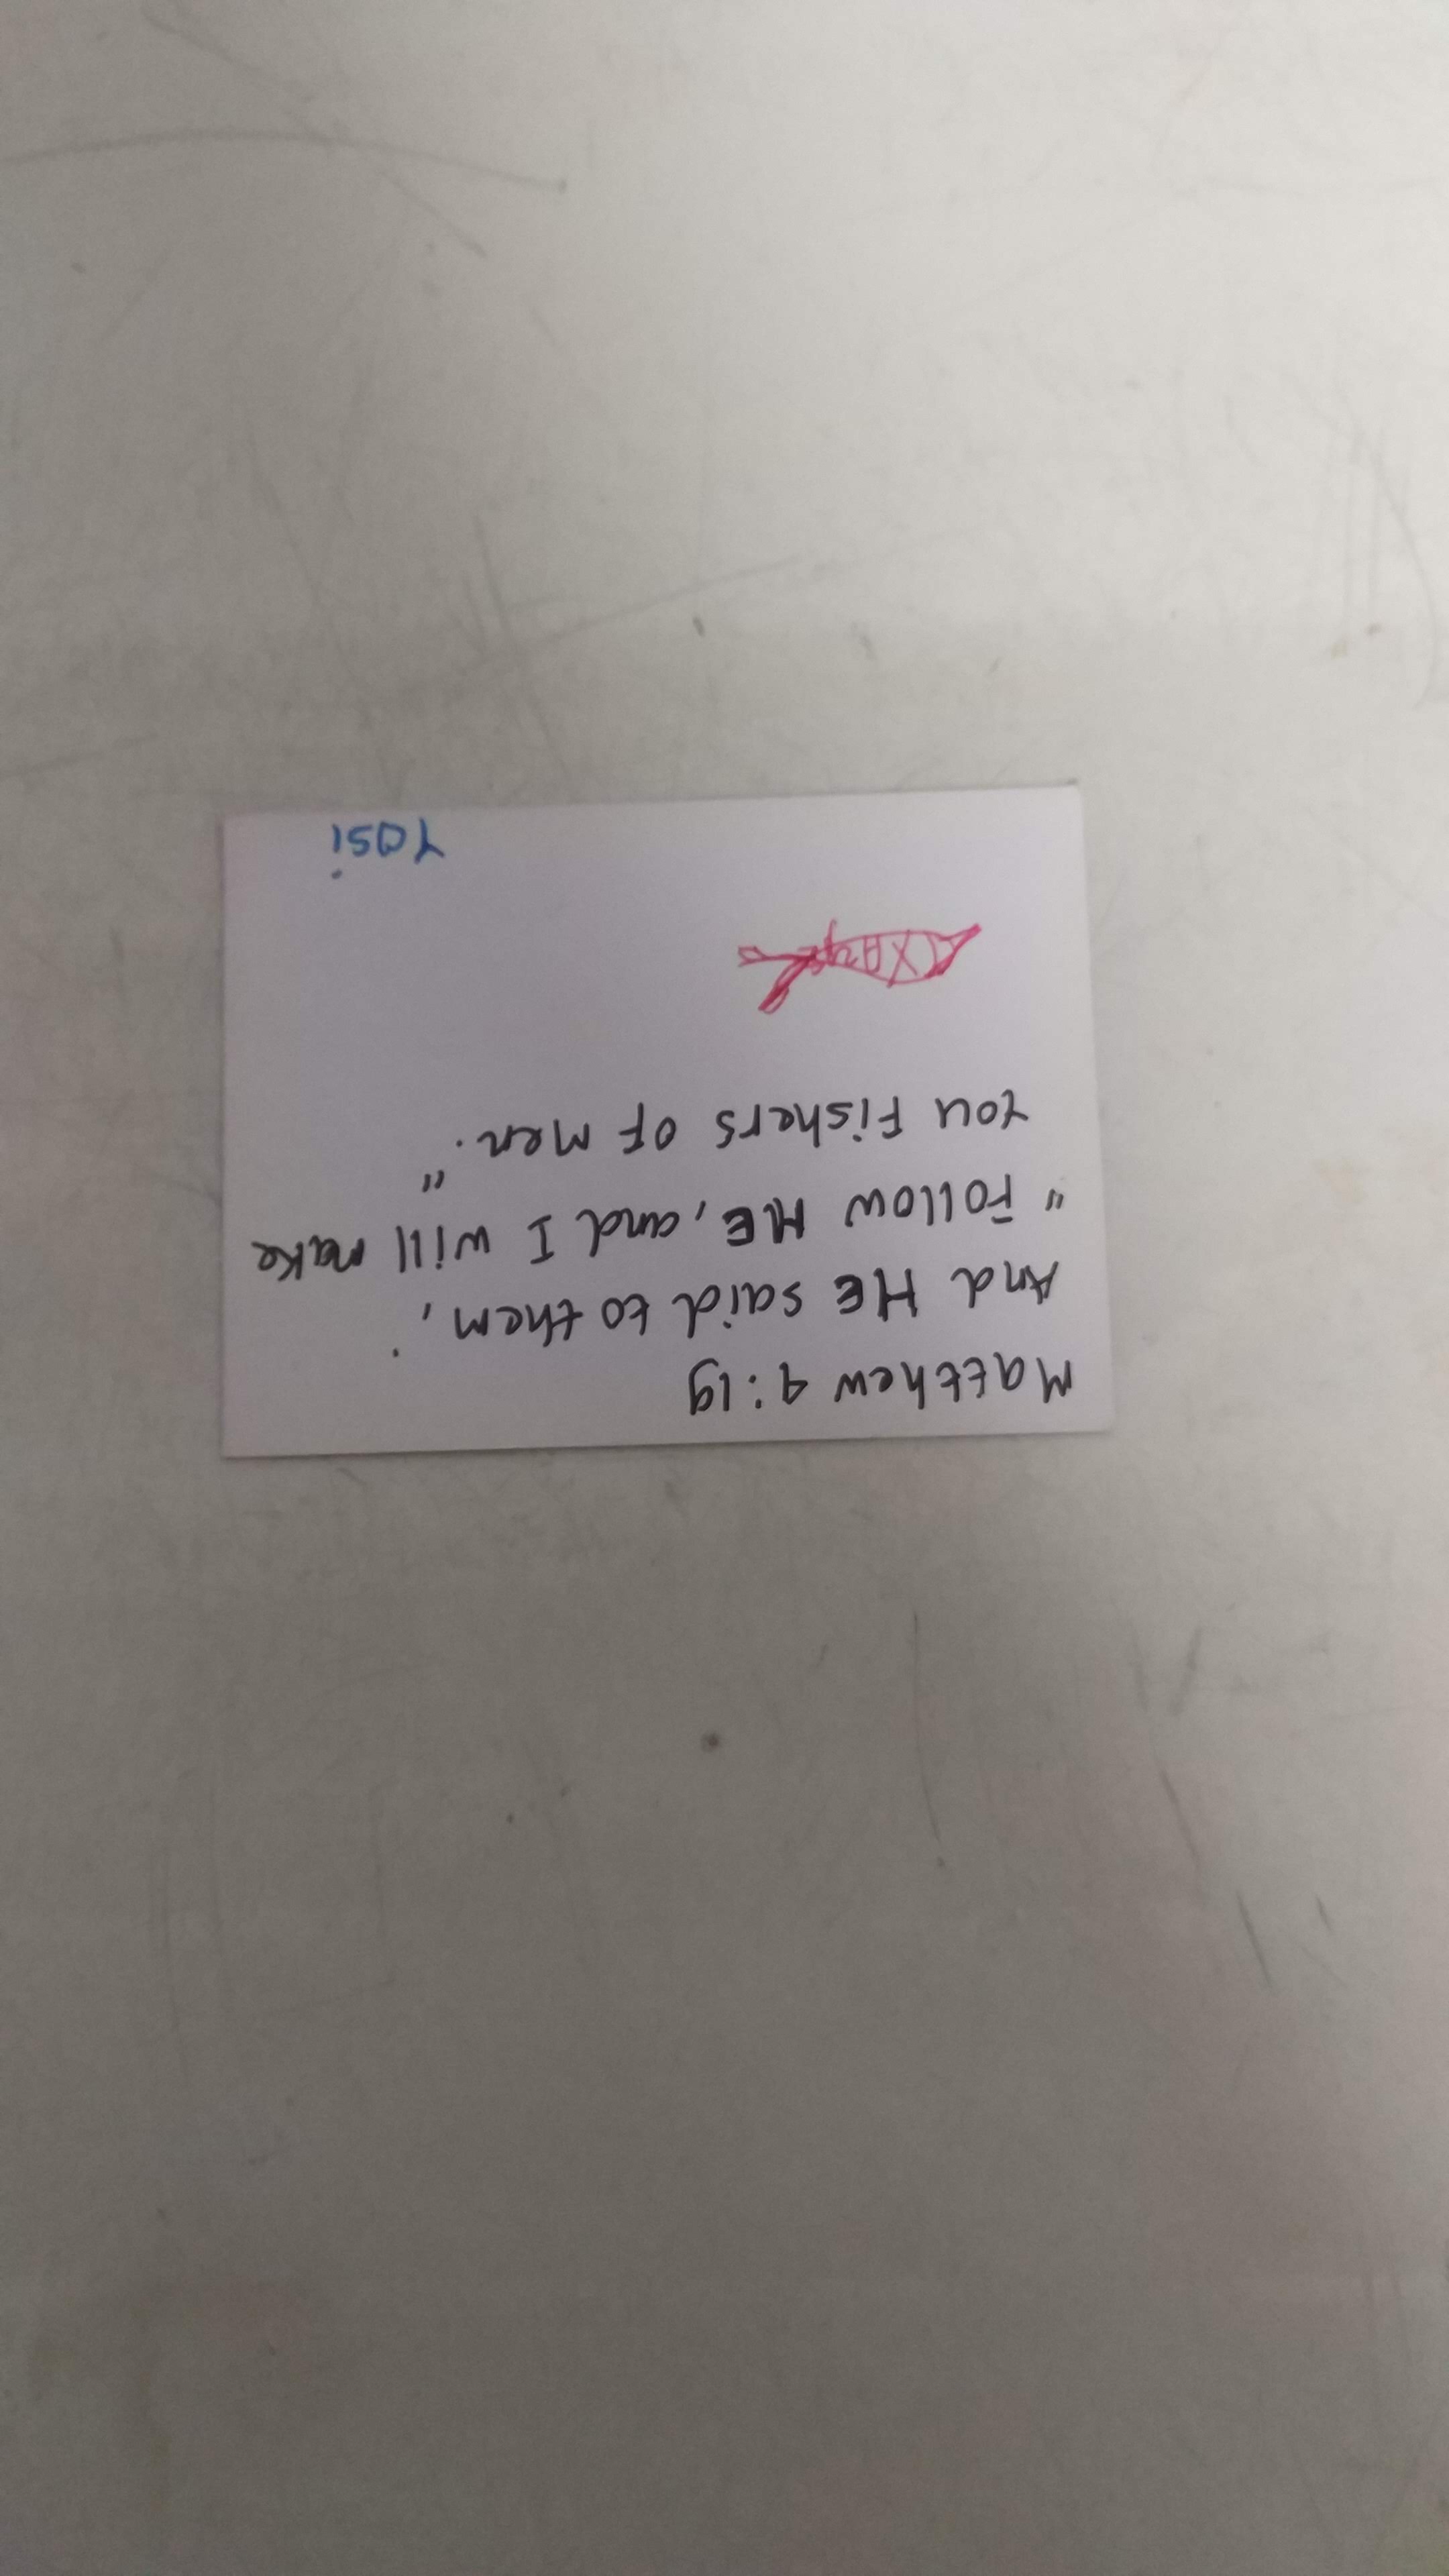 Matthew 4:19
And HE said to them,
"Follow ME, and I will make
you Fishers of Men."
Yasi